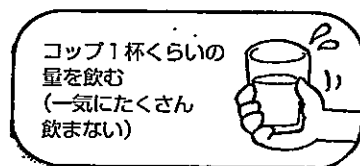 コップ1杯くらいの
量を飲む
（一気にたくさん
飲まない）